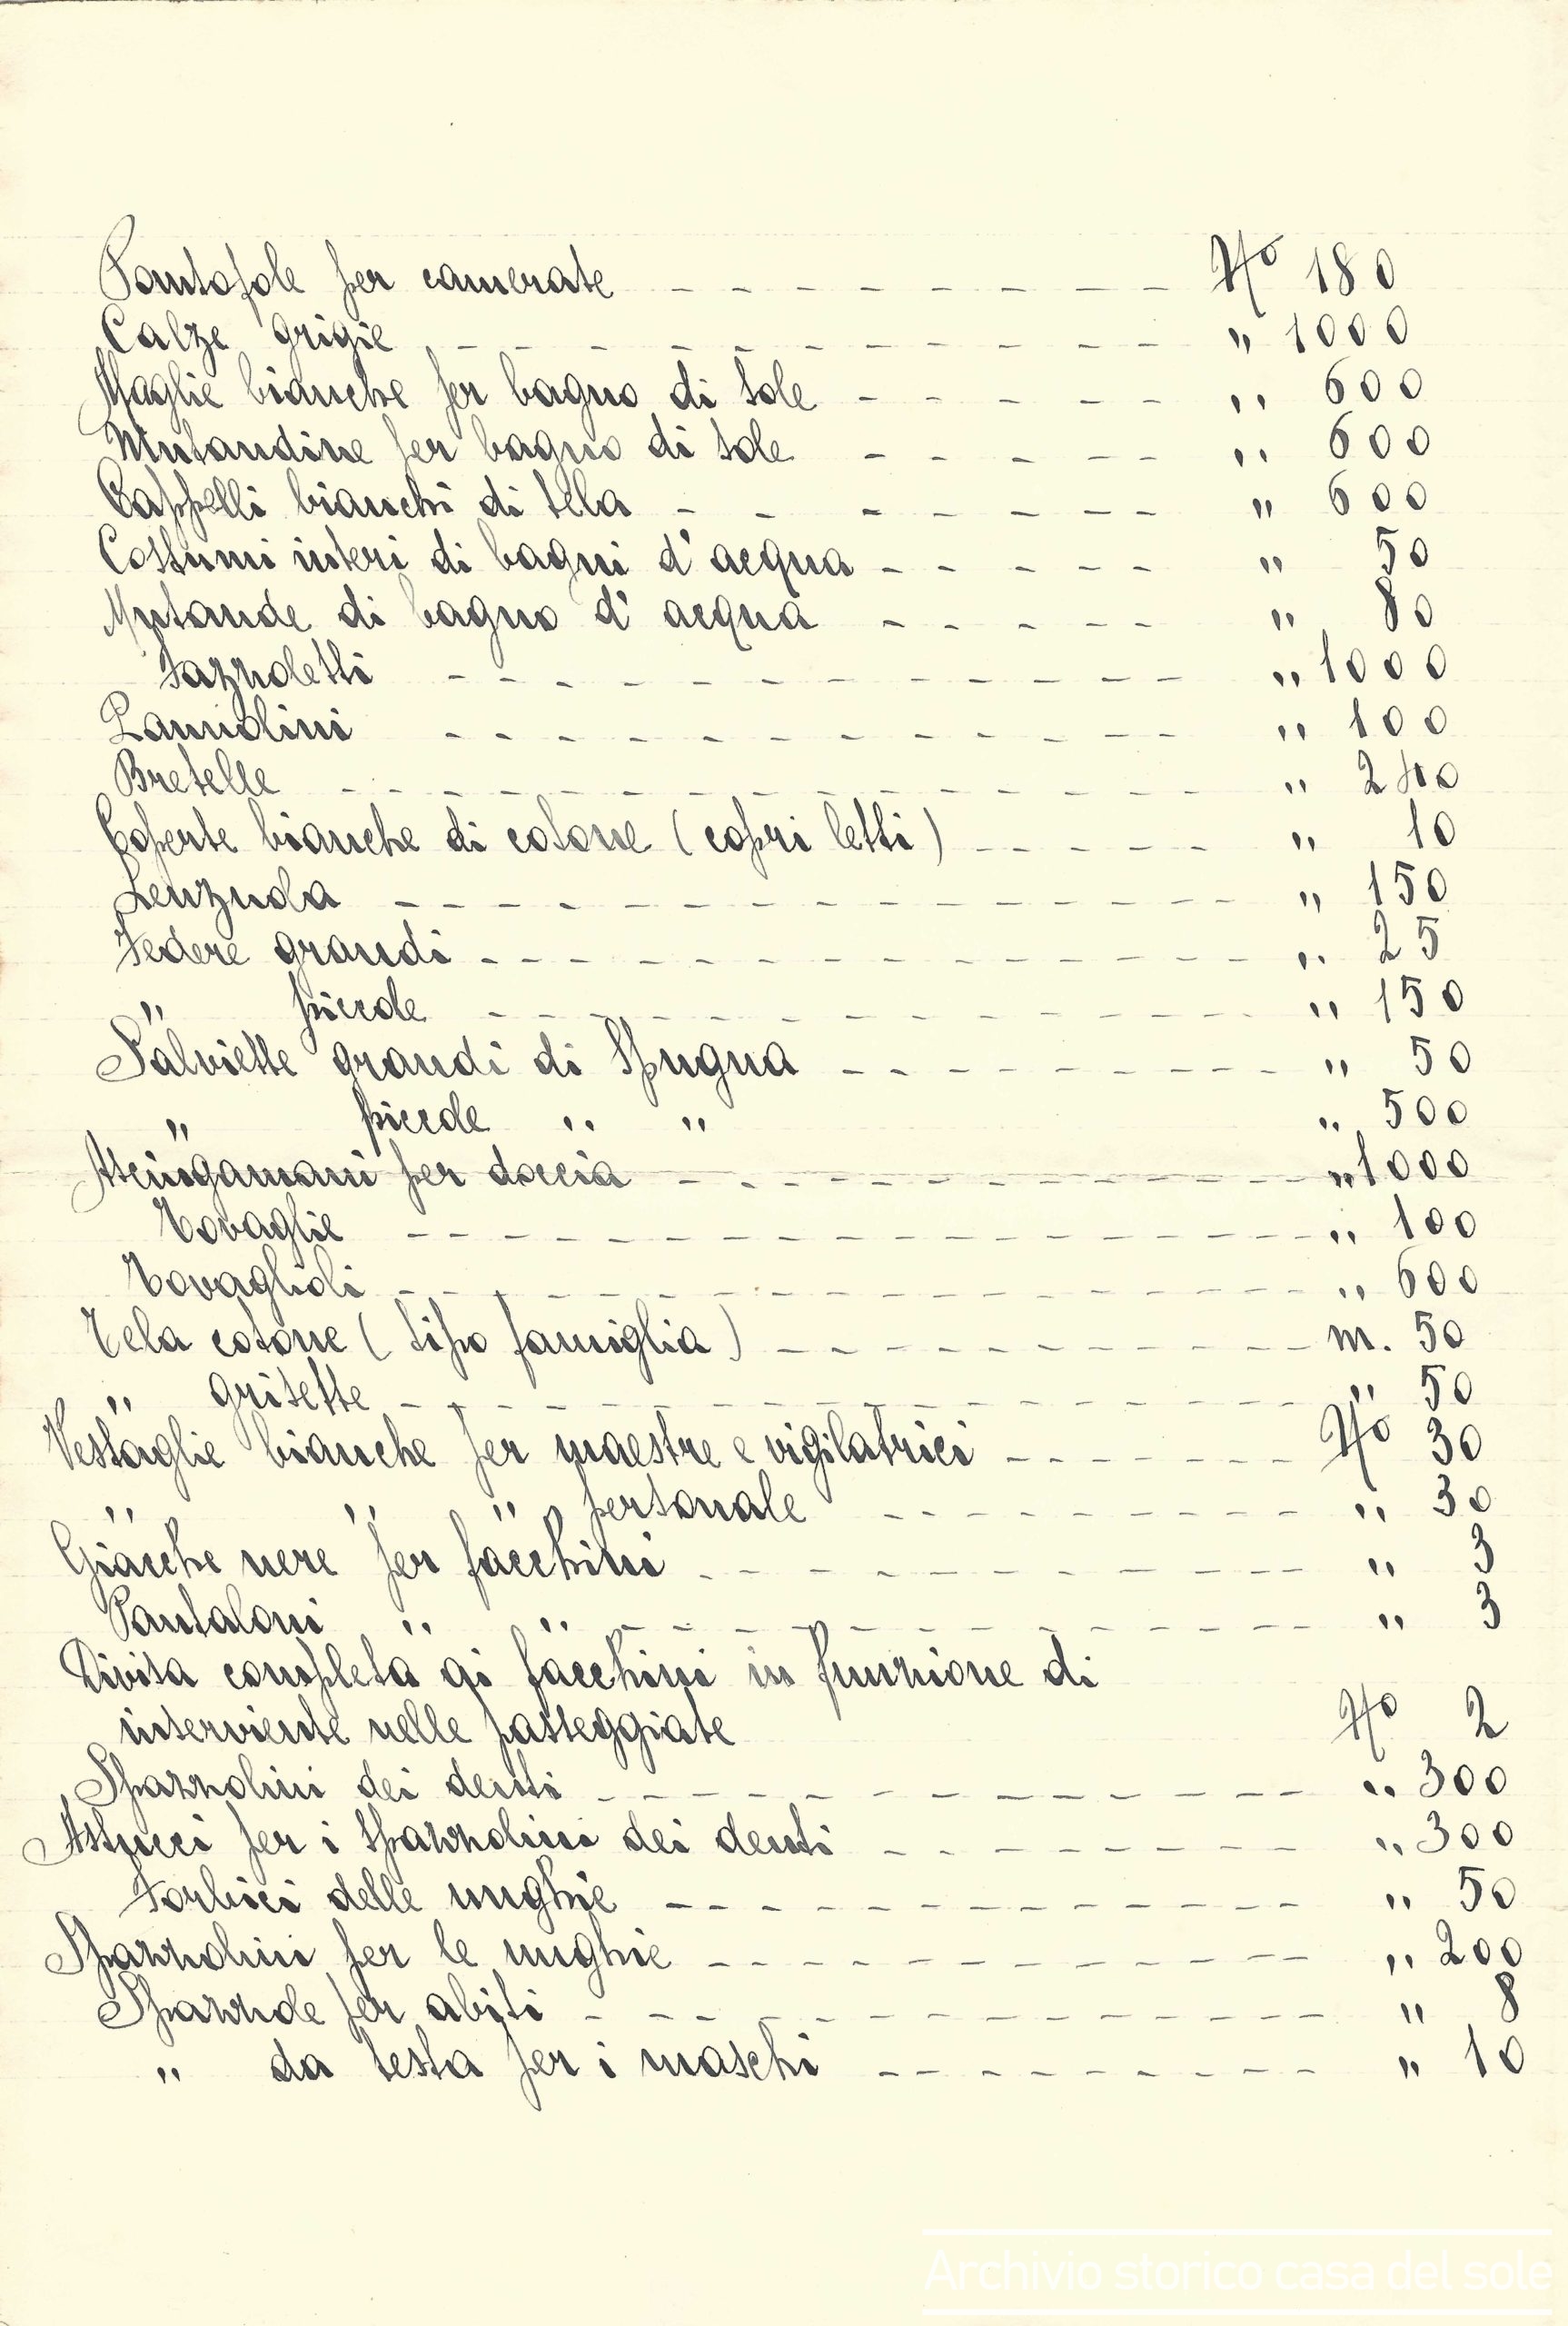 Pantofole per camerate - - - - - - - - - No 180
Calze grigie - - - - - - - - - - - - " 1000
Maglie bianche per bagno di sole - - - - - " 600
Mutandine per bagno di sole - - - - - - " 600
Cappelli bianchi di tela - - - - - - - " 600
Costumi interi di bagni d'acqua - - - - - " 50
Mutande di bagno d'acqua - - - - - " 80
Fazzoletti - - - - - - - - - - - - " 1000
Pannolini - - - - - - - - - - - - " 100
Bretelle - - - - - - - - - - - - - " 240
Coperte bianche di cotone (copri letti) - - - - - " 10
Lenzuola - - - - - - - - - - - - - - - " 150
Federe grandi - - - - - - - - - - - - - " 25
" piccole - - - - - - - - - - - - " 150
Salviette grandi di Spugna - - - - - - - - - " 50
" piccole " " " 500
Asciugamani per doccia - - - - - - - - - - " 1000
Tovaglie - - - - - - - - - - - - - - - - " 100
Tovaglioli - - - - - - - - - - - - - - - " 600
Tela cotone (tipo famiglia) - - - - - - - - - m. 50
" grisette - - - - - - - - - - - - - - " 50
Vestaglie bianche per maestre e vigilatrici - - - - - - No 30
" " " personale - - - - - - - - " 30
Giacche nere per facchini - - - - - - - - - - " 3
Pantaloni " " - - - - - - - - - - " 3
Divisa completa gi facchini in funzione di
inserviente nelle passeggiate No 2
Spazzolini dei denti - - - - - - - - - - - - " 300
Astucci per i spazzolini dei denti - - - - - - - - " 300
Forbici delle unghie - - - - - - - - - - - - " 50
Spazzolini per le unghie - - - - - - - - - - - " 200
Spazzole per abiti - - - - - - - - - - - - - " 8
" da testa per i maschi - - - - - - - - " 10
Archivio storico casa del sole